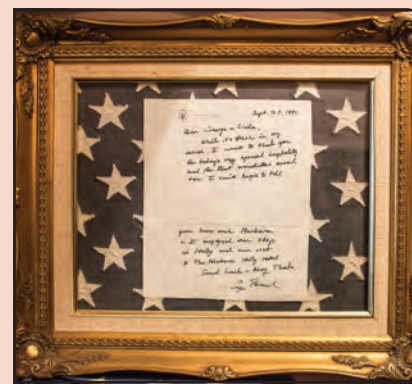 Sept. 27, 1992
Dear George & Linda,
While it's fresh in my
mind, I want to thank you
for today's very special hospitality
and for that wonderful
I can't begin to tell
you how much Barbara
& I enjoyed our stop
in Holly and our visit
to The Historic Holly Hotel
Good Luck - Many Thanks,